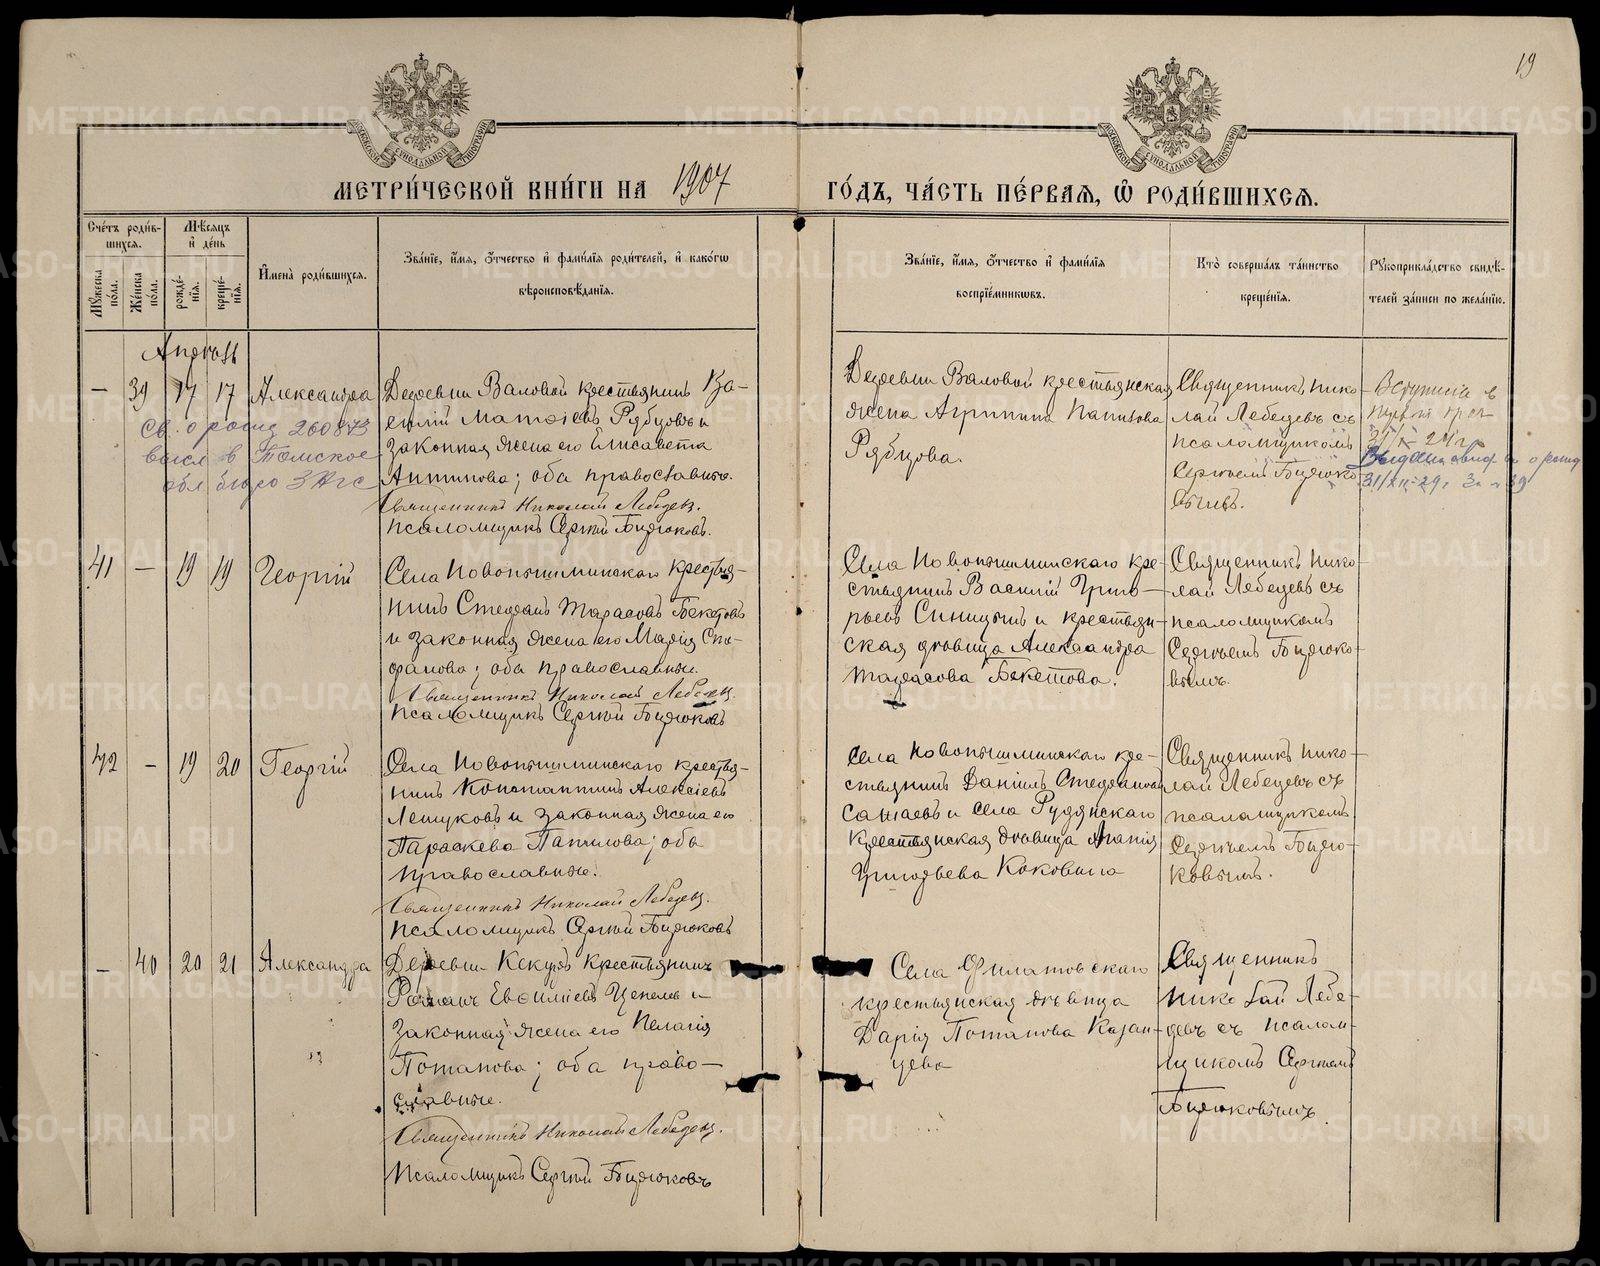 19
МЕТРИ́ЧЕСКОЙ КНИ́ГИ НА 1907
ГО́ДЪ, ЧА́СТЬ ПЕ́РВАѦ, Ѡ҆ РОДИ́ВШИХСѦ.
Счетъ роди́в-
шихсѧ.
Мѣсѧцъ
и҆ де́нь
Мꙋжеска по́ла.
Же́нска по́ла.
рожде́-
нїѧ.
креще́-
нїѧ.
И҆мена̀ роди́вшихсѧ.
Зва́нїе, и҆́мѧ, ѻ҆́тчество и҆ фами́лїѧ роди́телей, и҆ како́гѡ
вѣроисповѣ́данїѧ.
Зва́нїе, и҆́мѧ, ѻ҆́тчество и҆ фами́лїѧ
воспрїе́мникѡвъ.
Кто̀ соверша́лъ та́инство
креще́нїѧ.
Рꙋкоприкла́дство свидѣ́-
телей за́писи по жела́нїю.
— 39 17 17 Александра
Деревни Валовой крестьянинъ Ва-
силій Матѳіевъ Рябцовъ и
законная жена его Елисавета
Антипова; оба православные.
Священникъ Николай Лебедев.
Псаломщикъ Сергій Бирюковъ.
Св. о рожд 260873
высл в Томское
обл бюро ЗАГС
Деревни Валовой крестьянская
жена Агрипина
Рябцова.
Священникъ Нико-
лай Лебедевъ съ
псаломщикомъ
Сергіемъ Бирюко-
вымъ.
41 — 19 19 Георгій
Села Новопышминскаго крестья-
нинъ Стефанъ Тарасовъ Бекетовъ
и законная жена его Марія Сте-
фанова; оба православные.
Священникъ Николай Лебедев.
Псаломщикъ Сергій Бирюковъ
Села Новопышминскаго кре-
стьянинъ Василій Григо-
рьевъ Синицынъ и крестьян-
ская дѣвица Александра
Тарасова Бекетова.
Священникъ Нико-
лай Лебедевъ съ
псаломщикомъ
Сергіемъ Бирюко-
вымъ.
42 — 19 20 Георгій
Села Новопышминскаго крестья-
нинъ Константинъ Алексіевъ
Летуковъ и законная жена его
Параскева; оба
православные.
Священникъ Николай Лебедев.
Псаломщикъ Сергій Бирюковъ
Села Новопышминскаго кре-
стьянинъ Даніилъ Стефановъ
и села Рудянскаго
крестьянская дѣвица
Григорьева Коковина
Священникъ Нико-
лай Лебедевъ съ
псаломщикомъ
Сергіемъ Бирю-
ковымъ.
— 40 20 21 Александра
Деревни крестьянинъ
Романъ Евѳиміевъ Цепелевъ и
законная жена его Пелагія
Потапова; оба право-
славные.
Священникъ Николай Лебедев.
Псаломщикъ Сергій Бирюковъ
Села Филатовскаго
крестьянская дѣвица
Дарія Потапова Казан-
цева
Священникъ
Николай Лебе-
девъ съ псалом-
щикомъ Сергіемъ
Бирюковымъ.